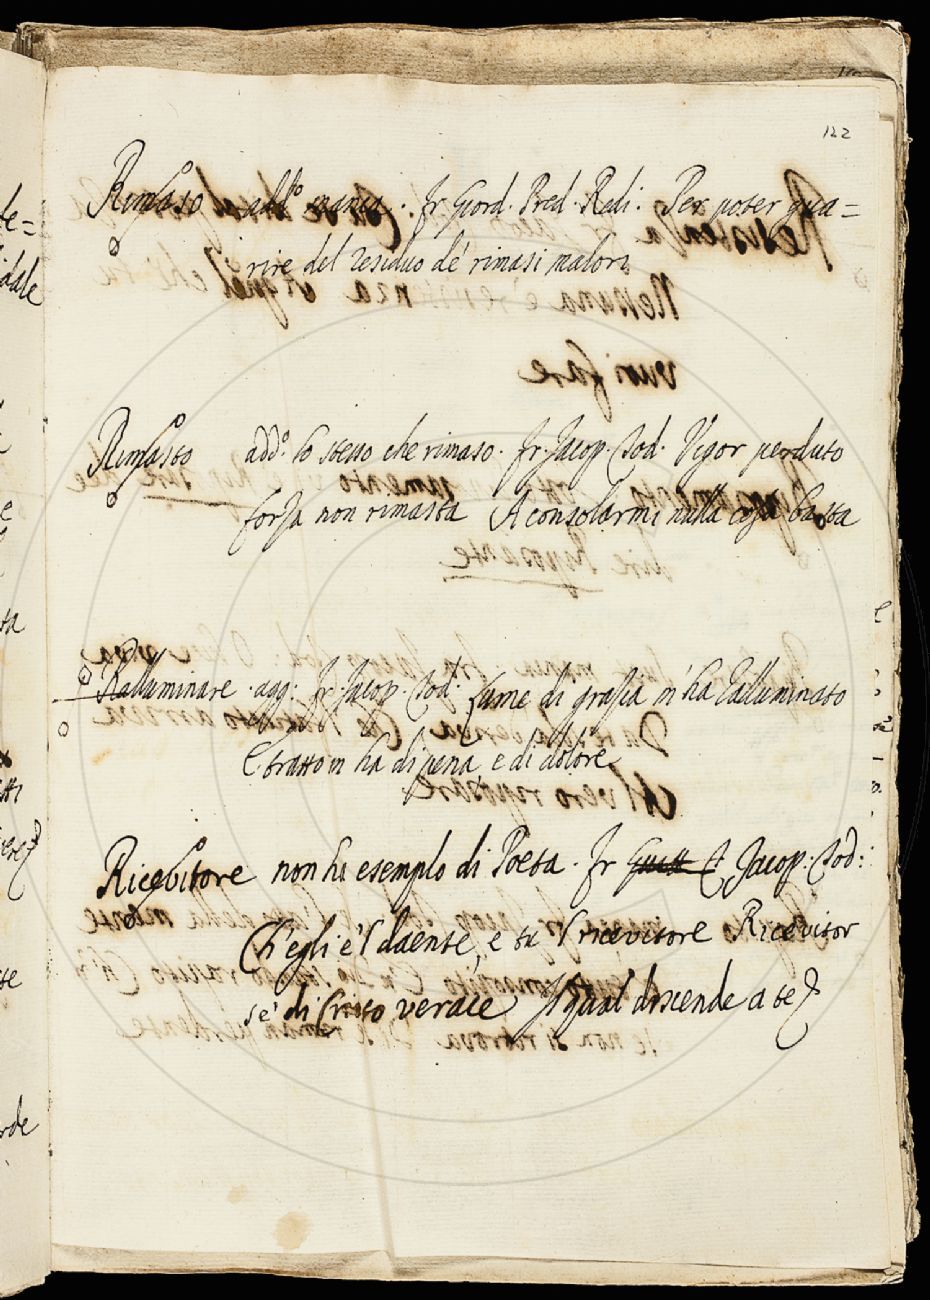 122
Rimaso add.º manca. Fr Giord. Pred. Redi. Per poter gua=
rire del residuo de' rimasi malori
Rimasto add.º lo stesso che rimaso. Fr. Jacop. Tod. Vigor perduto
forza non rimasta A consolarmi nulla cosa basta
Ralluminare. agg: Fr. Jacop. Tod: Lume di grazia m'ha ralluminato
E tratto m ha di pena, e di dolore
Ricevitore non hà esemplo di Poeta. Fr Jacop: Tod:
Ch'egli è 'l daente, e tu 'l ricevitore Ricevitor
se' di Cristo verace Il qual discende a te